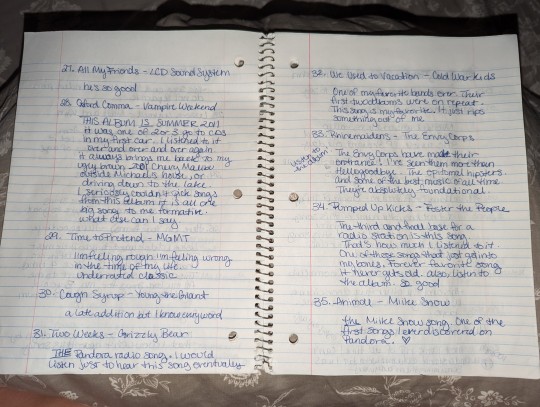 27. All My Friends - LCD Soundsystem
he's so good
28. Oxford Comma - Vampire Weekend
THIS ALBUM IS SUMMER 2011
It was one of 2 or 3 go to CDs
in my first car. I listened to it
over and over and over again
it always brings me back to my
ugly brown 2001 Chevy Malibu
outside Michael's house, or
driving down to the lake.
I seriously couldn't pick songs
from this album it is all one
big song to me formative.
what else can I say
29. Time to Pretend - MGMT
I'm feeling rough I'm feeling wrong
in the time of my life.
underrated classic
30. Cough Syrup - Young the Giant
a late addition but I know every word
31. Two Weeks - Grizzly Bear
THE Pandora radio song. I would
listen just to hear this song eventually
32. We Used to Vacation - Cold War Kids
One of my favorite bands ever. Their
first two albums were on repeat.
This song is my favorite. It just rips
something out of me.
33. Rhinemaidens - The Envy Corps
The Envy Corps have made their
entrance! I've seen them more than
Hellogoodbye. The epitome hipsters
and some of the best music of all time
They're absolutely foundational.
34. Pumped Up Kicks - Foster the People
The third and final base for a
radio station is this song.
That's how much I listened to it
One of those songs that just got into
my bones. Forever favorite song
it never gets old. also, listen to
the album. so good
35. Animal - Miike Snow
the Miike Snow song. One of the
first songs I ever discovered on
Pandora. ♡